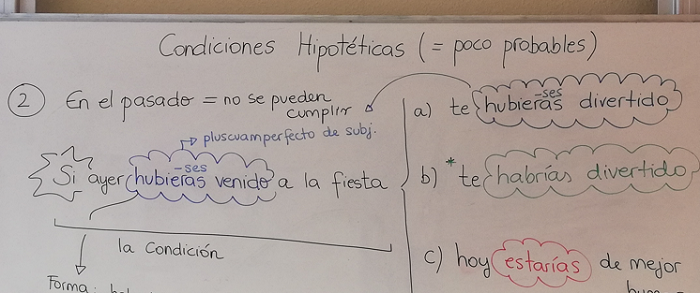 Condiciones Hipotéticas (= poco probables)
② En el pasado = no se pueden
cumplir
pluscuamperfecto de subj.
-ses
Si ayer hubieras venido a la fiesta
la Condición
Forma:
-ses
a) te hubieras divertido
b) * te habrías divertido
c) hoy estarías de mejor